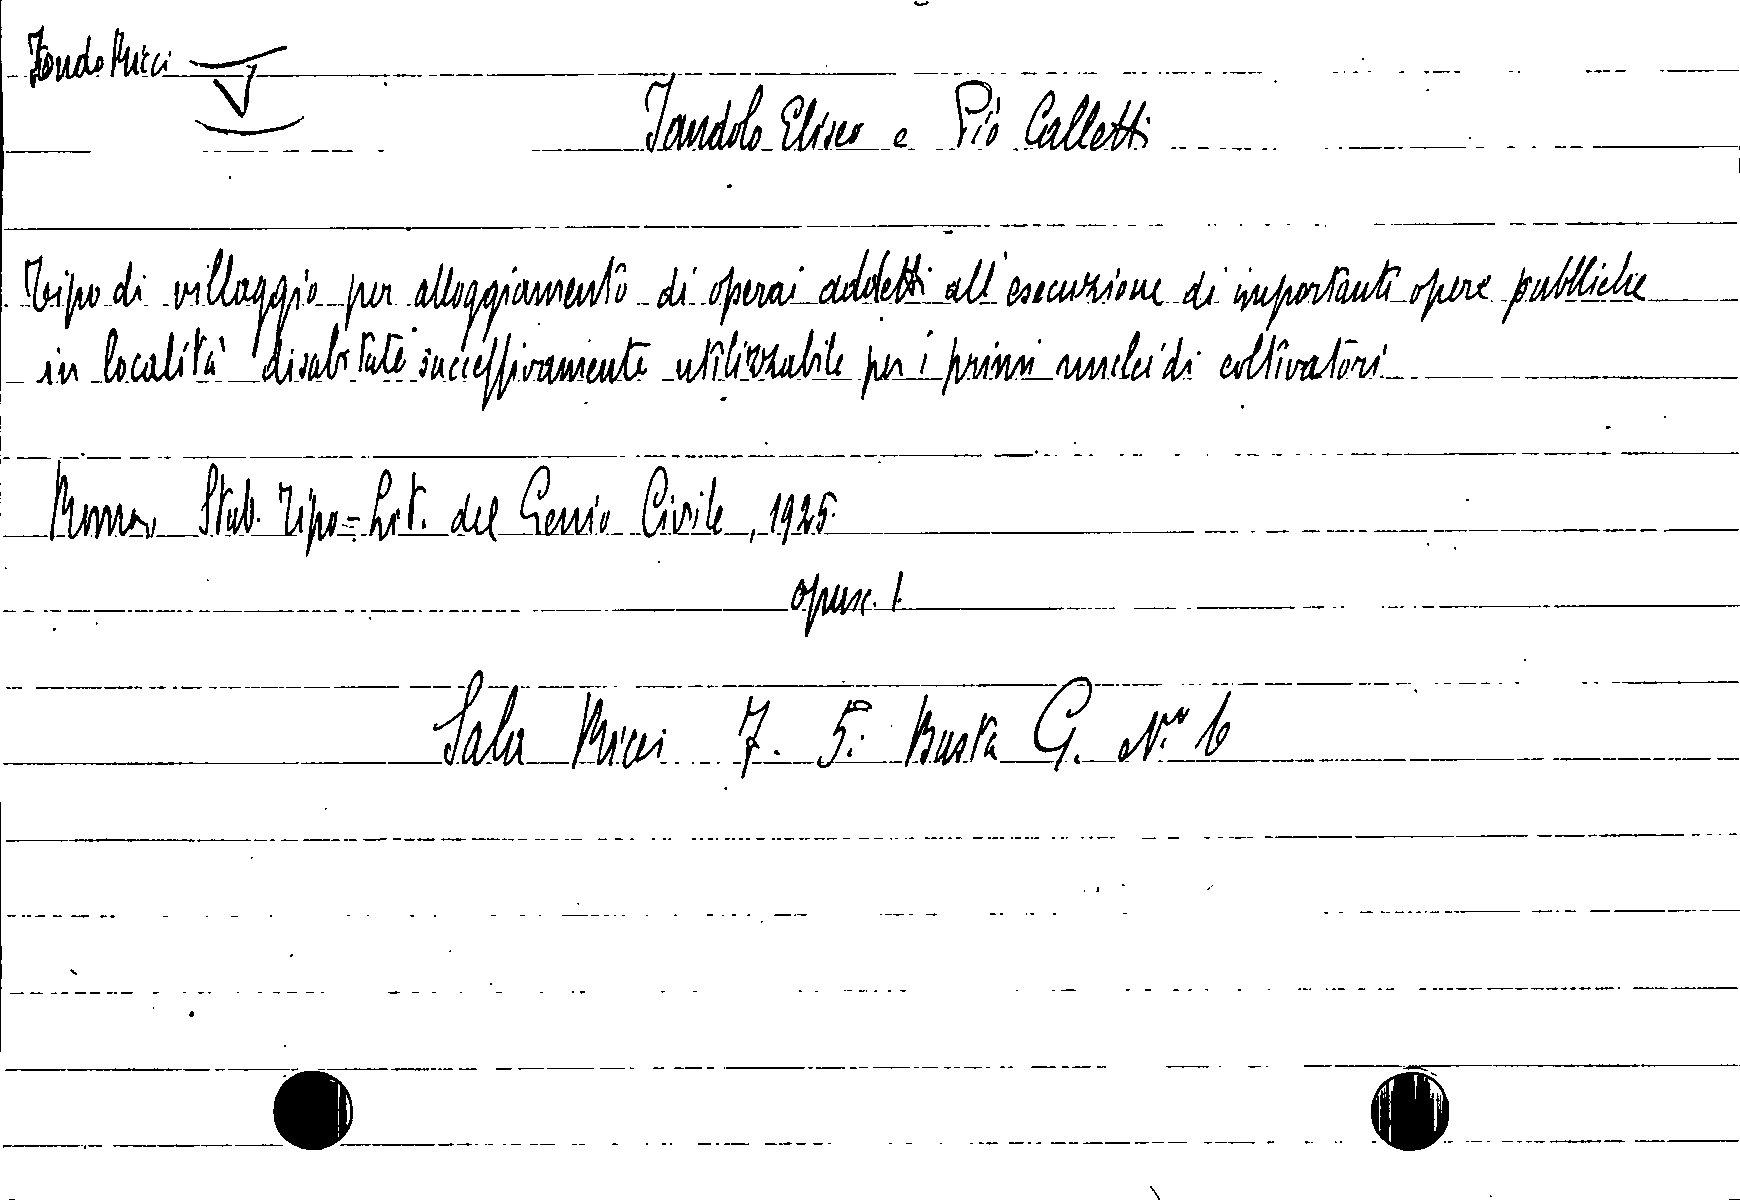 Fondo Ricci
V
Jandolo Eliseo e Pio Calletti
Tipo di villaggio per alloggiamento di operai addetti all'esecuzione di importanti opere pubbliche
in località disabitate successivamente utilizzabile per i primi nuclei di coltivatori
Roma Stab. Tipo=Lit. del Genio Civile, 1925.
opusc. 1.
Sala Ricci 7. 5. Busta G. N.º 6